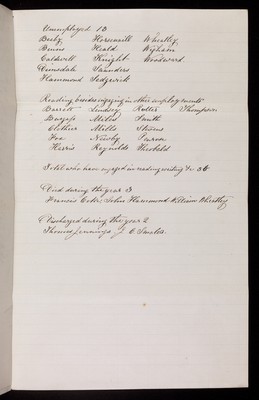 Unemployed 13
Busby Horsenaill Wheatley
Burns Heald Wigham
Caldwell Knight Woodward
Dimsdale Saunders
Hammond Sedgwick
Reading besides engaging in other employments
Barrett Lindsey Rotter Thompson
Burgess Miles Smith
Clothier Mills Stevens
Fox Newby
Harris Reynolds Theobald
Total who have engaged in reading writing &c 36
Died during the year 3
Francis Cork, John Hammond William Wheatley
Discharged during the year 2
Thomas Jennings J C Smales